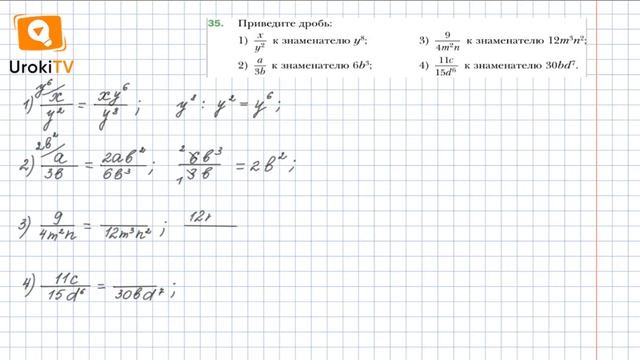 UrokiTV
35. Приведите дробь:
1) x/y² к знаменателю y⁸; 3) 9/4m²n к знаменателю 12m³n²;
2) a/3b к знаменателю 6b³; 4) 11c/15d⁶ к знаменателю 30bd⁷.
1) y⁶/ x/y² = xy⁶/y⁸ ; y⁸ : y² = y⁶ ;
2) 2b²/ a/3b = 2ab²/6b³ ; ²6b³/₁3b = 2b² ;
3) 9/4m²n = /12m³n² ; 12
4) 11c/15d⁶ = /30bd⁷ ;